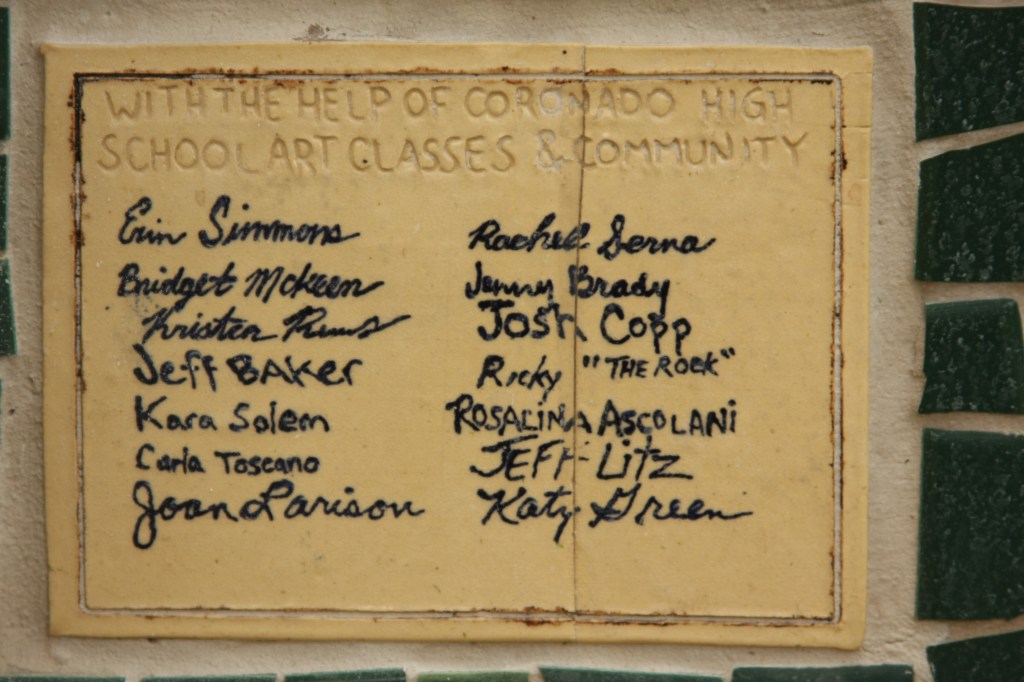 WITH THE HELP OF CORONADO HIGH
SCHOOL ART CLASSES & COMMUNITY
Erin Simmons
Bridget McKeen
Kristen
Jeff BAKer
Kara Solem
Carla Toscano
Joan Larison
Rachel Serna
Jenny Brady
JOSH COPP
Ricky "THE ROCK"
ROSALINA ASCOLANi
JEFF LiTZ
Katy Green